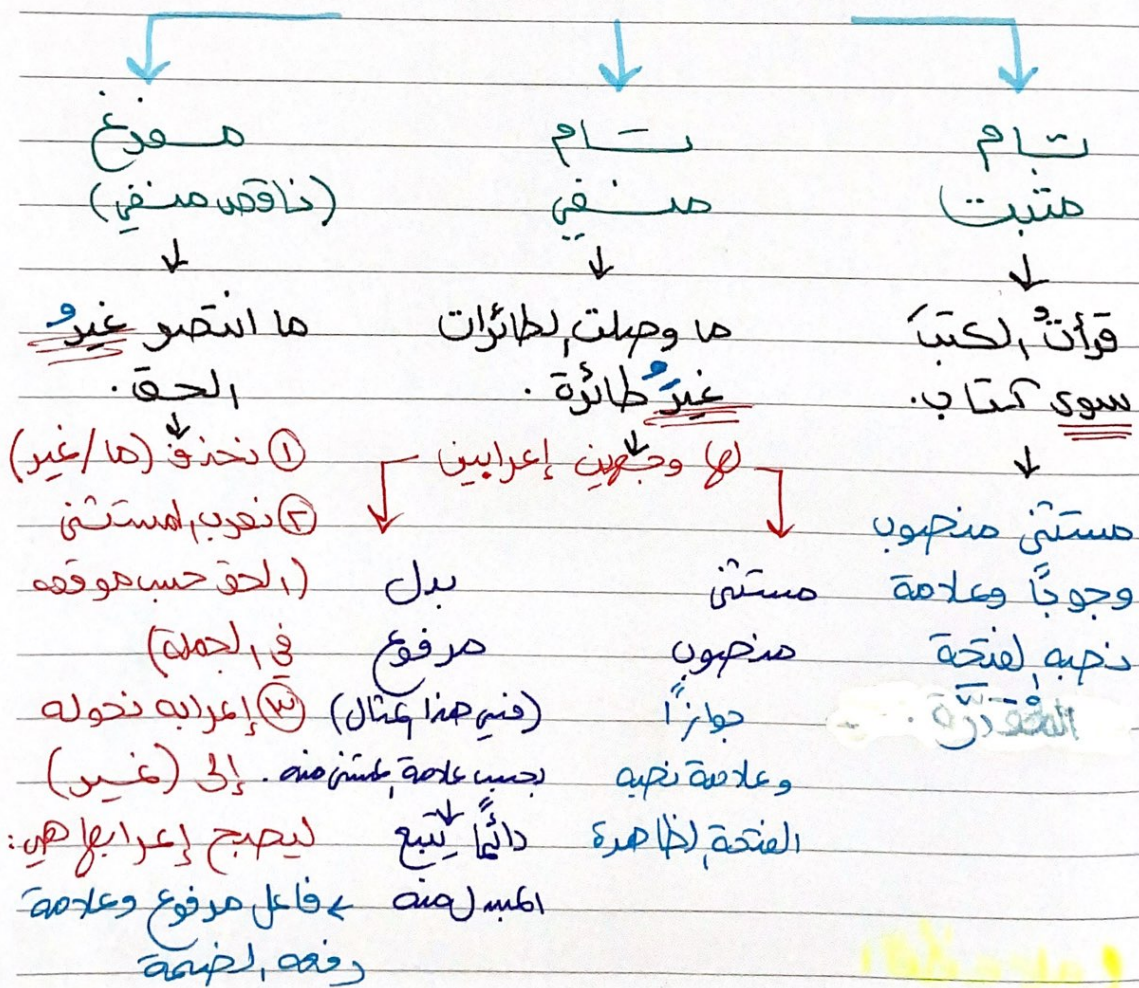 تام
مثبت
↓
قرأتُ الكتبَ
سوى كتاب.
↓
مستثنى منصوب
وجوبًا وعلامة
نصبه الفتحة
المُقدَّرة.
تام
منفي
↓
ما وصلت الطائرات
غيرُ طائرة.
↓
لها وجهين إعرابين
مستثنى
منصوب
جوازًا
وعلامة نصبه
الفتحة الظاهرة
بدل
مرفوع
(في هذا المثال)
بحسب علامة المستثنى منه.
↓
دائمًا يتبع
المبدل منه
مفرغ
(ناقص منفي)
↓
ما انتصر غيرُ
الحق.
↓
① نحذف (ما/غير)
② نعرب المستثنى
(الحق حسب موقعه
في الجملة)
③ إعرابه نحوله
إلى (غير)
ليصبح إعرابها هي:
فاعل مرفوع وعلامة
رفعه الضمة